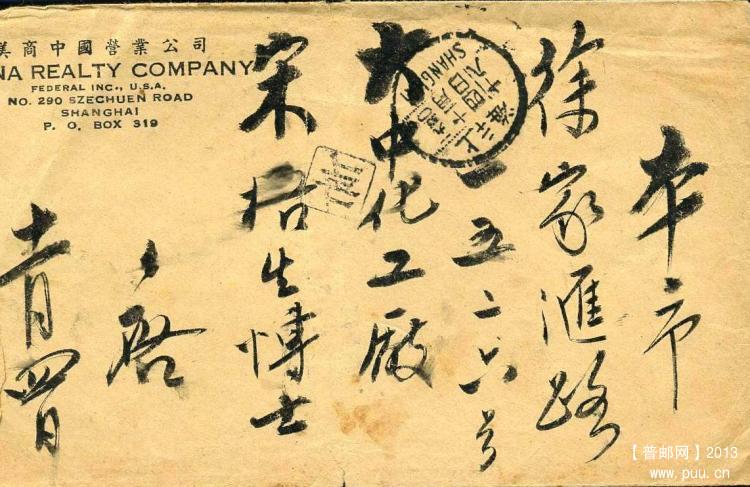 美商中國營業公司
NA REALTY COMPANY
FEDERAL INC., U.S.A.
NO. 290 SZECHUEN ROAD
SHANGHAI
P. O. BOX 319
本市
徐家滙路
一五二六号
大中化工廠
宋梧生愽士
啓
十一月四日
上海
SHANG
【普邮网】2013
www.puu.cn